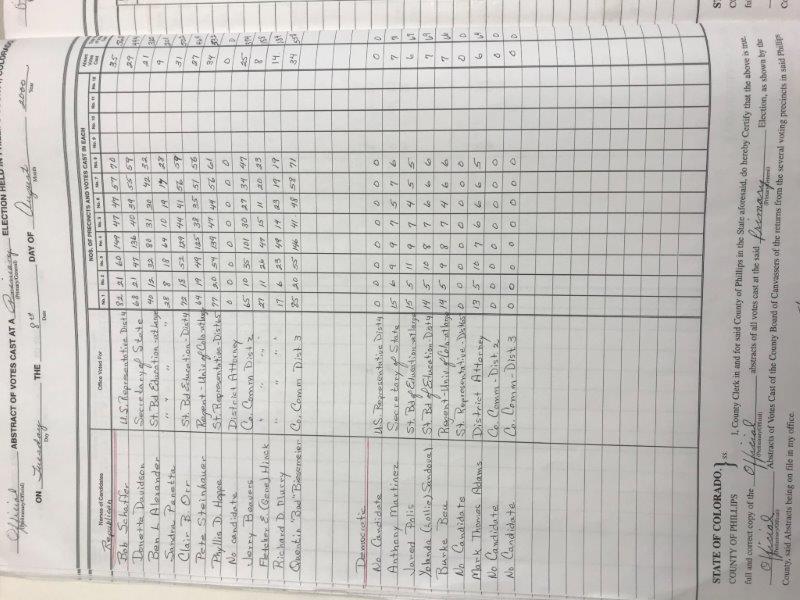 Official ABSTRACT OF VOTES CAST AT A Primary ELECTION HELD IN
ON Tuesday THE 8th DAY OF August 2000
Day Date Month Year
NOS. OF PRECINCTS AND VOTES CAST IN EACH
Names of Candidates Office Voted For No. 1 No. 2 No. 3 No. 4 No. 5 No. 6 No. 7 No. 8 No. 9 No. 10 No. 11 No. 12
Republican
Bob Schaffer U.S. Representative Dist 4 82 21 60 149 47 47 57 70 35
Donetta Davidson Secretary of State 68 21 47 136 40 39 55 59 29
Ben L Alexander St. Bd Education-at large 40 12 32 80 31 30 42 32 21
Sandra Panetta " " " 28 8 18 64 10 19 19 28 9
Clair B. Orr St. Bd Education-Dist 4 72 18 52 129 44 41 56 59 31
Pete Steinhauer Regent-Univ of Colo-at large 64 19 49 125 38 35 51 56 27
Phyllis D. Hoppe St. Representative-Dist 65 77 20 54 139 47 49 56 61 34
No candidate District Attorney 0 0 0 0 0 0 0 0 0
Jerry Beavers Co. Comm Dist 2 65 10 35 101 30 27 34 47 25
Fletcher E (Gene) Hinck " " " 27 11 26 47 15 11 20 23 8
Richard D. Murry " " 17 6 23 49 19 23 19 19 14
Quentin "Bud" Biesemeier Co. Comm Dist 3 85 20 55 146 41 48 58 71 34
Democratic
No Candidate U.S. Representative Dist 4 0 0 0 0 0 0 0 0 0 0
Anthony Martinez Secretary of State 15 6 9 9 7 5 7 6 7
Jared Polis St. Bd of Education-at large 15 5 11 9 7 4 5 5 6
Yolanda (Lollie) Sandoval St Bd of Education-Dist 4 14 5 10 8 7 6 6 6 7 69
Burke Beu Regent-Univ of Colo-at large 14 5 9 8 7 4 6 6 7
No Candidate St. Representative-Dist 65 0 0 0 0 0 0 0 0 0 0
Mark Thomas Adams District Attorney 13 5 10 7 6 6 6 5 6
No Candidate Co. Comm-Dist. 2 0 0 0 0 0 0 0 0 0 0
No Candidate Co. Comm-Dist 3 0 0 0 0 0 0 0 0 0 0
STATE OF COLORADO, } ss
COUNTY OF PHILLIPS
I, County Clerk in and for said County of Phillips in the State aforesaid, do hereby Certify that the above is true,
full and correct copy of the Official abstracts of all votes cast at the said Primary Election, as shown by the
Official Abstracts of Votes Cast of the County Board of Canvassers of the returns from the several voting precincts in said Phillips
County, said Abstracts being on file in my office.